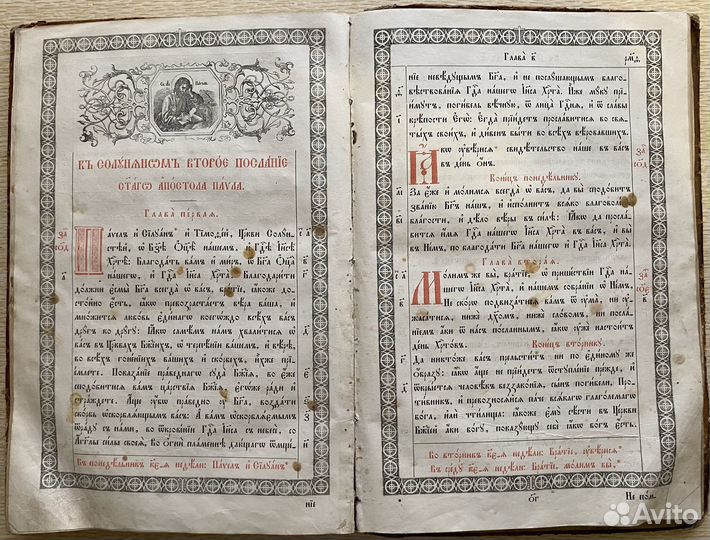 Къ солунѧномъ второ́е посла́нїе
ст҃а́гѡ а҆по́стола па́ѵла.
Глава̀ пе́рваѧ.
Па́ѵелъ и҆ сїлꙋа́нъ и҆ тїмоѳе́й, цр҃кви солꙋ́н-
стѣй, ѡ҆ бз҃ѣ ѻ҆ц҃ѣ̀ на́шемъ, и҆ гдⷭ҇ѣ і҆и҃сѣ
хрⷭ҇тѣ̀: Благода́ть ва́мъ и҆ ми́ръ, ѿ бг҃а ѻ҆ц҃а̀
на́шегѡ, и҆ гдⷭ҇а і҆и҃са хрⷭ҇та̀. Благодари́ти
до́лжни є҆смы̀ бг҃а всегда̀ ѡ҆ ва́съ, бра́тїе, ꙗ҆́коже до-
сто́йно є҆́сть, ꙗ҆́кѡ превозраста́етъ вѣ́ра ва́ша, и҆
мно́житсѧ любо́вь є҆ди́нагѡ коегѡ́ждо всѣ́хъ ва́съ
дрꙋ́гъ ко дрꙋ́гꙋ: Ꙗ҆́кѡ самѣ̑мъ на́мъ хвали́тисѧ ѡ҆
ва́съ въ цр҃квахъ бж҃їихъ, ѡ҆ терпѣ́нїи ва́шемъ, и҆ вѣ́рѣ,
во всѣ́хъ гоне́нїихъ ва́шихъ и҆ ско́рбехъ, ꙗ҆̀же прї-
е́млете. Показа́нїе пра́веднагѡ сꙋда̀ бж҃їѧ, во є҆́же
сподо́битисѧ ва́мъ ца́рствїѧ бж҃їѧ, є҆гѡ́же ра́ди и҆
стра́ждете. А҆́ще ᲂу҆́бѡ пра́ведно ᲂу҆ бг҃а, возда́ти
ско́рбь ѡ҆скорблѧ́ющымъ ва́съ: А҆ ва́мъ ѡ҆скорблѧ́емымъ
ѿра́дꙋ съ на́ми, во ѿкрове́нїи гдⷭ҇а і҆и҃са съ небесѐ, со
а҆́гг҃лы си́лы своеѧ̀, Во ѻ҆гнѝ пла́меннѣ даю́щагѡ ѿмще́-
Въ понедѣ́льникъ к҃є-ѧ недѣ́ли: Па́ѵелъ и҆ сїлꙋа́нъ
нїе
Глава̀ в҃
рм҃д.
нїе невѣ́дꙋщымъ бг҃а, и҆ не послꙋ́шающымъ благо-
вѣствова́нїѧ гдⷭ҇а на́шегѡ і҆и҃са хрⷭ҇та̀. И҆̀же мꙋ́кꙋ прїи́-
мꙋтъ, поги́бель вѣ́чнꙋю, ѿ лица̀ гдⷭ҇нѧ, и҆ ѿ сла́вы
крѣ́пости є҆гѡ̀: Є҆гда̀ прїи́детъ просла́витисѧ во свѧ-
ты́хъ свои́хъ, и҆ ди́венъ бы́ти во всѣ́хъ вѣ́ровавшихъ.
Ꙗ҆́кѡ ᲂу҆вѣ́рисѧ свидѣ́тельство на́ше въ ва́съ
въ де́нь ѻ҆́нъ.
Коне́цъ понедѣ́льникꙋ.
За є҆́же и҆ мо́лимсѧ всегда̀ ѡ҆ ва́съ, да вы̀ сподо́битъ
зва́нїю бг҃ъ на́шъ, и҆ и҆спо́лнитъ всѧ́ко благоволе́нїе
благо́сти, и҆ дѣ́ло вѣ́ры въ си́лѣ: Ꙗ҆́кѡ да просла́-
витсѧ и҆́мѧ гдⷭ҇а на́шегѡ і҆и҃са хрⷭ҇та̀ въ ва́съ, и҆ вы̀
въ не́мъ, по благода́ти бг҃а на́шегѡ и҆ гдⷭ҇а і҆и҃са хрⷭ҇та̀.
Глава̀ втора́ѧ.
Мо́лимъ же вы̀, бра́тїе, ѡ҆ прише́ствїи гдⷭ҇а на́-
шегѡ і҆и҃са хрⷭ҇та̀, и҆ на́шемъ собра́нїи ѡ҆ не́мъ,
Не ско́рѡ подви́затисѧ ва́мъ ѿ ᲂу҆ма̀, ни ᲂу҆-
жаса́тисѧ, нижѐ дꙋ́хомъ, нижѐ сло́вомъ, ни посла́-
нїемъ а҆́ки ѿ на́съ по́сланнымъ, ꙗ҆́кѡ ᲂу҆жѐ настои́тъ
де́нь хрⷭ҇то́въ.
Коне́цъ вто́рникꙋ.
Да никто́же ва́съ прельсти́тъ ни по є҆ди́номꙋ же
ѻ҆́бразꙋ: ꙗ҆́кѡ а҆́ще не прїи́детъ ѿстꙋпле́нїе пре́жде, и҆
ѿкры́етсѧ человѣ́къ беззако́нїѧ, сы́нъ поги́бели, Про-
ти́вникъ, и҆ превозносѧ́йсѧ па́че всѧ́кагѡ глаго́лемагѡ
бо́га, и҆лѝ чти́лища: ꙗ҆́коже є҆мꙋ̀ сѣ́сти въ цр҃кви
бж҃їей а҆́ки бо́гꙋ, показꙋ́ющꙋ себѐ ꙗ҆́кѡ бо́гъ є҆́сть.
Во вто́рникъ к҃є-ѧ недѣ́ли: Бра́тїе, ᲂу҆вѣ́рисѧ
Въ сре́дꙋ к҃є-ѧ недѣ́ли: Бра́тїе, мо́лимъ вы̀,
Не по́м.
Avito